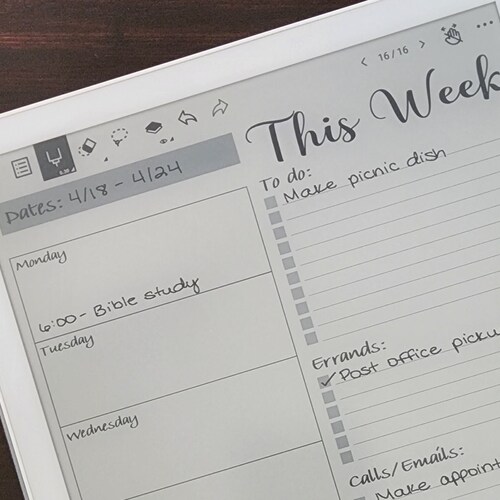 16/16
This Week
Dates: 4/18 - 4/24
To do:
Make picnic dish
Monday
6:00 - Bible study
Tuesday
Wednesday
Errands:
✓ Post office
Calls/Emails:
Make